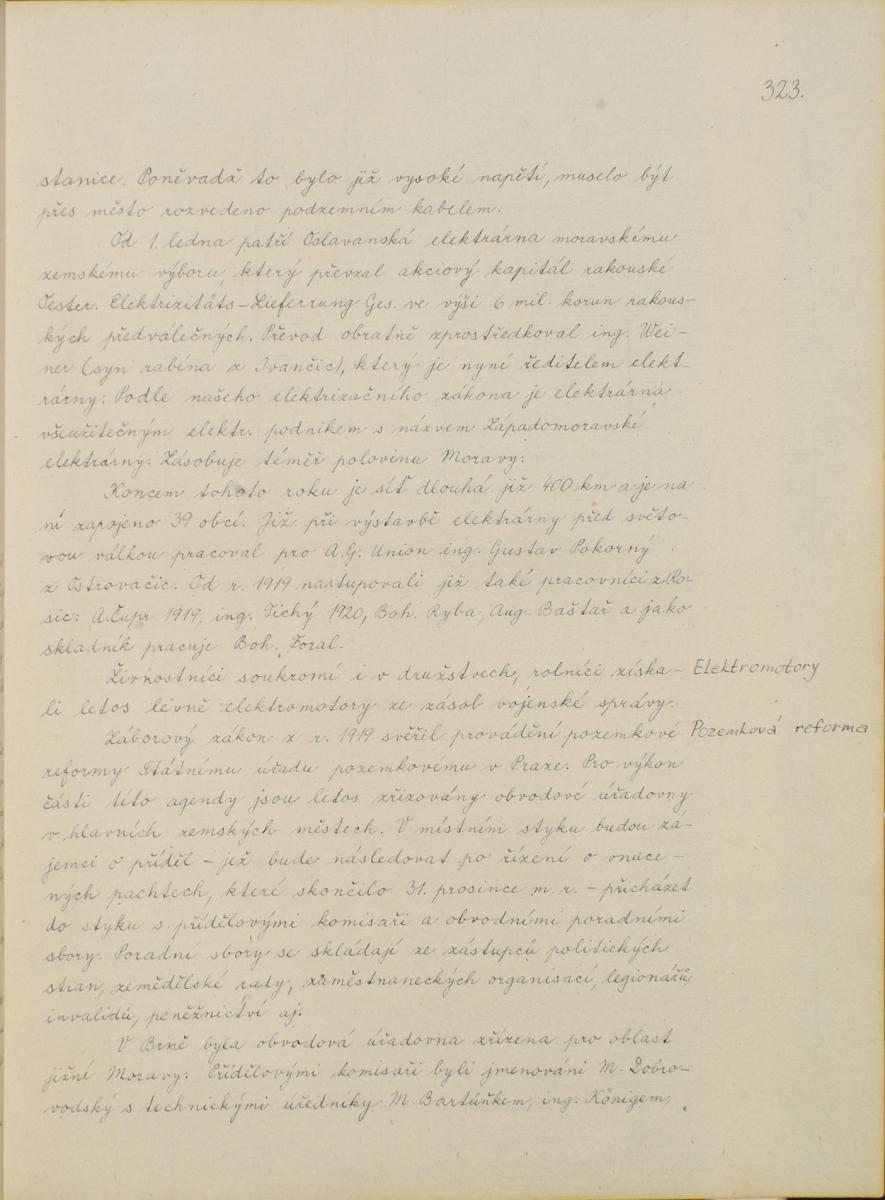 323.
stanice. Poněvadž to bylo již vysoké napětí, muselo být
přes město rozvedeno podzemním kabelem.
Od 1. ledna patří Oslavanská elektrárna moravskému
zemskému výboru, který převzal akciový kapitál rakouské
Oester. Elektrizitäts-Lieferrung Ges. ve výši 6 mil. korun rakous-
kých předválečných. Převod obratně zprostředkoval ing. Wei-
ner (syn rabína z Ivančic), který je nyní ředitelem elekt-
rárny. Podle našeho elektrizačního zákona je elektrárna
všeužitečným elektr. podnikem s názvem Západomoravské
elektrárny. Zásobuje téměř polovinu Moravy.
Koncem tohoto roku je síť dlouhá již 400 km a je na
ní zapojeno 39 obcí. Již při výstavbě elektrárny před světo-
vou válkou pracoval pro A.G. Union ing. Gustav Pokorný
z Ostrovačic. Od r. 1919 nastupovali již také pracovníci z Ro-
sic: A. Čupr 1919, ing. Tichý 1920, Boh. Ryba, Aug. Baštař a jako
skladník pracuje Boh. Foral.
Živnostníci soukromí i v družstvech, rolníci získa- Elektromotory
li letos levně elektromotory ze zásob vojenské správy.
Záborový zákon z r. 1919 svěřil provádění pozemkové Pozemková reforma
reformy Státnímu úřadu pozemkovému v Praze. Pro výkon
části této agendy jsou letos zřizovány obvodové úřadovny
v hlavních zemských městech. V místním styku budou zá-
jemci o příděl - jež bude následovat po řízení o vnuce-
ných pachtech, které skončilo 31. prosince m. r. - přicházet
do styku s přídělovými komisaři a obvodními poradními
sbory. Poradní sbory se skládají ze zástupců politických
stran, zemědělské rady, zaměstnaneckých organisací, legionářů,
invalidů, peněžnictví aj.
V Brně byla obvodová úřadovna zřízena pro oblast
jižní Moravy. Přídělovými komisaři byli jmenováni M. Dobro-
vodský s technickými úředníky M. Bartůňkem, ing. Königem,